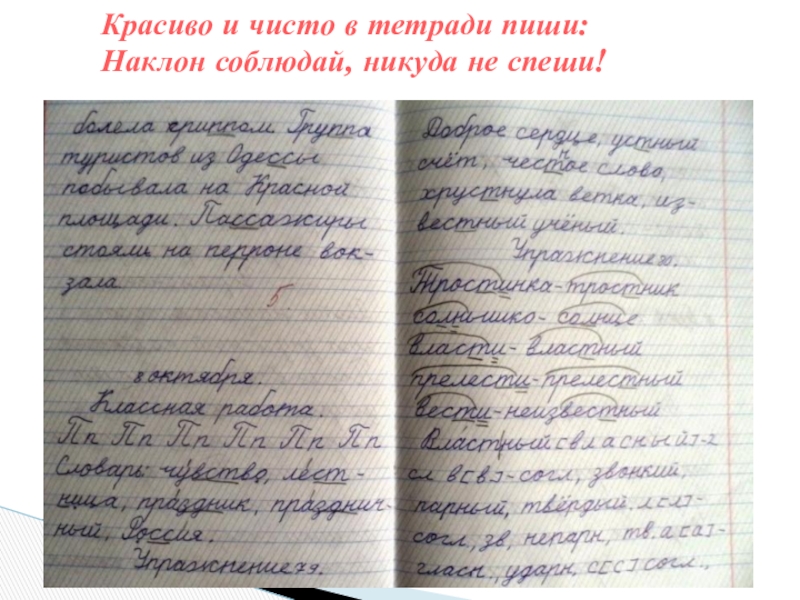 Красиво и чисто в тетради пиши:
Наклон соблюдай, никуда не спеши!
болела гриппом. Группа
туристов из Одессы
побывала на Красной
площади. Пассажиры
стояли на перроне вок-
зала.
5
8 октября.
Классная работа.
Пп Пп Пп Пп Пп Пп
Словарь: чувство, лест-
ница, праздник, празднич-
ный, Россия.
Упражнение 79.
Доброе сердце, устный
счёт, честное слово,
хрустнула ветка, из-
вестный учёный.
Упражнение 80.
Тростинка-тростник
солнышко-солнце
Власти-властный
прелести-прелестный
вести-неизвестный
Властный [в л а с н ы й]-2
сл. в [в]-согл., звонкий,
парный, твёрдый. л [л]-
согл., зв., непарн., тв. а [а]-
гласн., ударн. с [с] согл.,